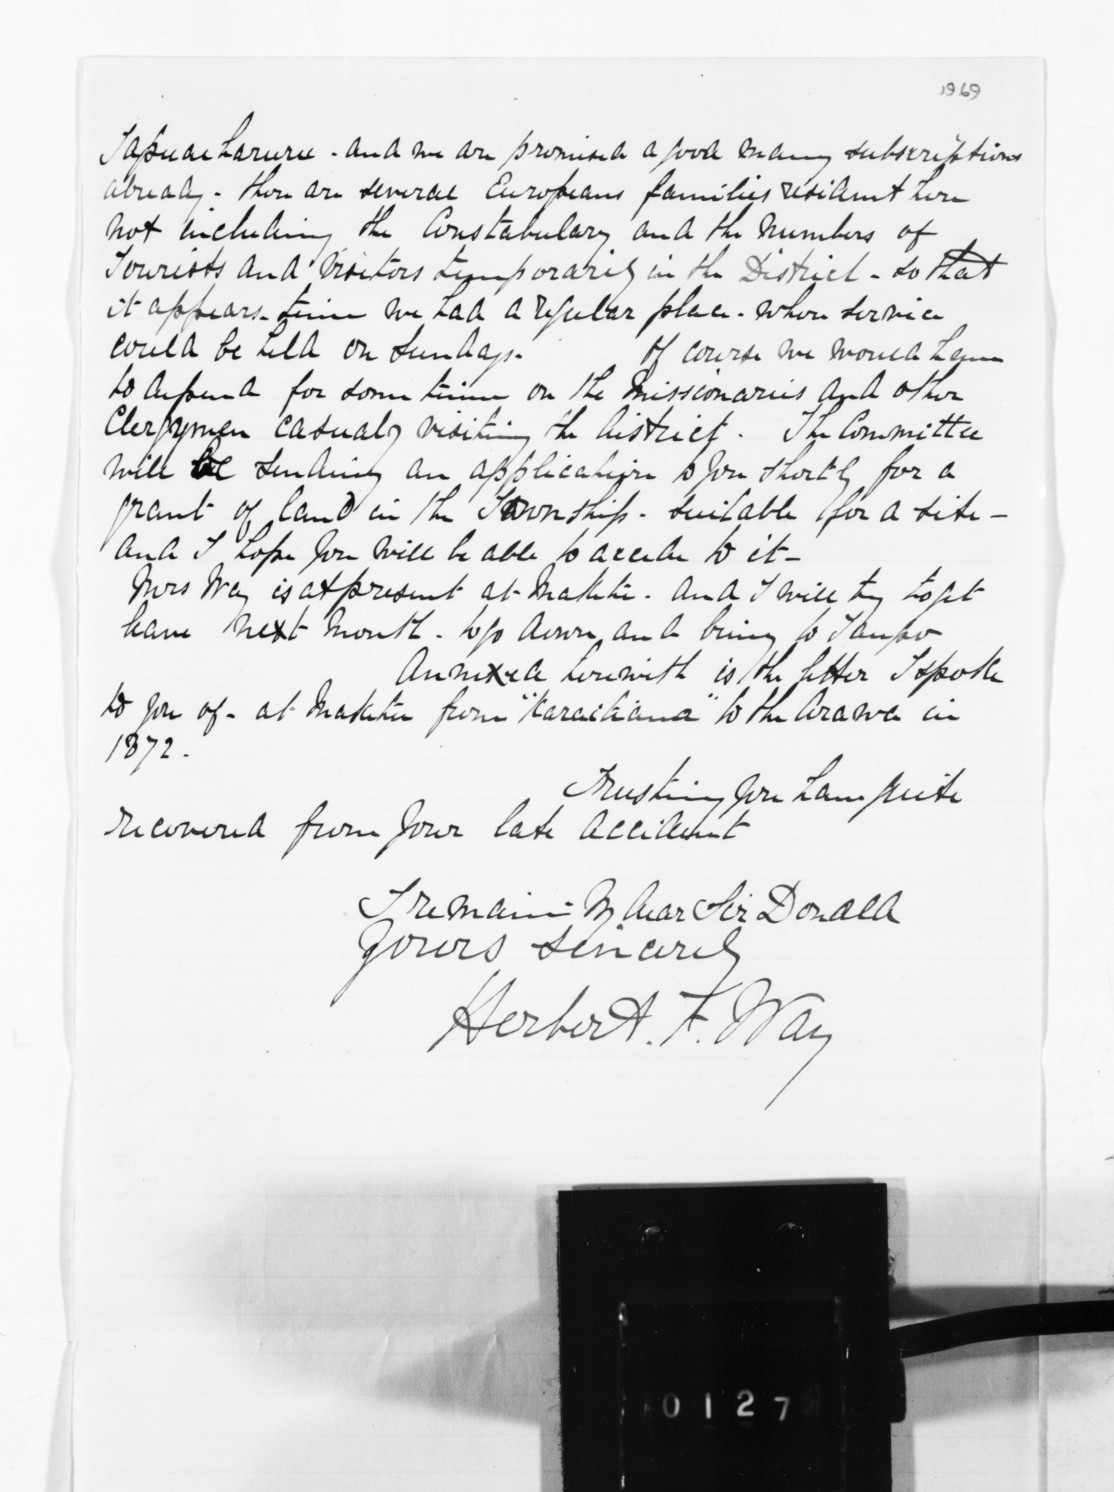 1969
Tapuaeharuru - and we are promised a good many subscriptions
already - there are several Europeans families resident here
not including the Constabulary and the numbers of
Tourists and Visitors temporarily in the District - so that
it appears - time we had a regular place - where service
could be held on Sundays. Of course we would have
to depend for some time on the Missionaries and other
Clergymen casually visiting the district. The Committee
will be sending an application to you shortly for a
grant of land in the Township - suitable for a site -
and I hope you will be able to accede to it -
Mrs Way is at present at Maketu - and I will try to get
leave next month - to go down and bring to Taupo
Annexed herewith is the letter I spoke
to you of - at Maketu from "Karaitiana" to the Arawa in
1872 -
Trusting you have quite
recovered from your late accident
I remain My dear Sir Donald
Yours sincerely
Herbert. F. Way
0127